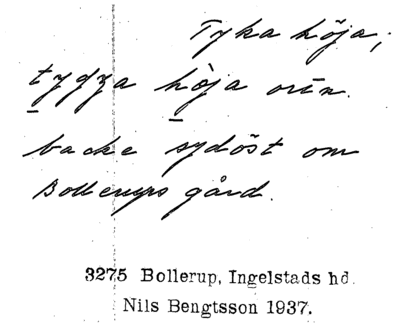 Tyka höja;
tydza höja
backe sydöst om
Bollerups gård.
3275 Bollerup, Ingelstads hd.
Nils Bengtsson 1937.